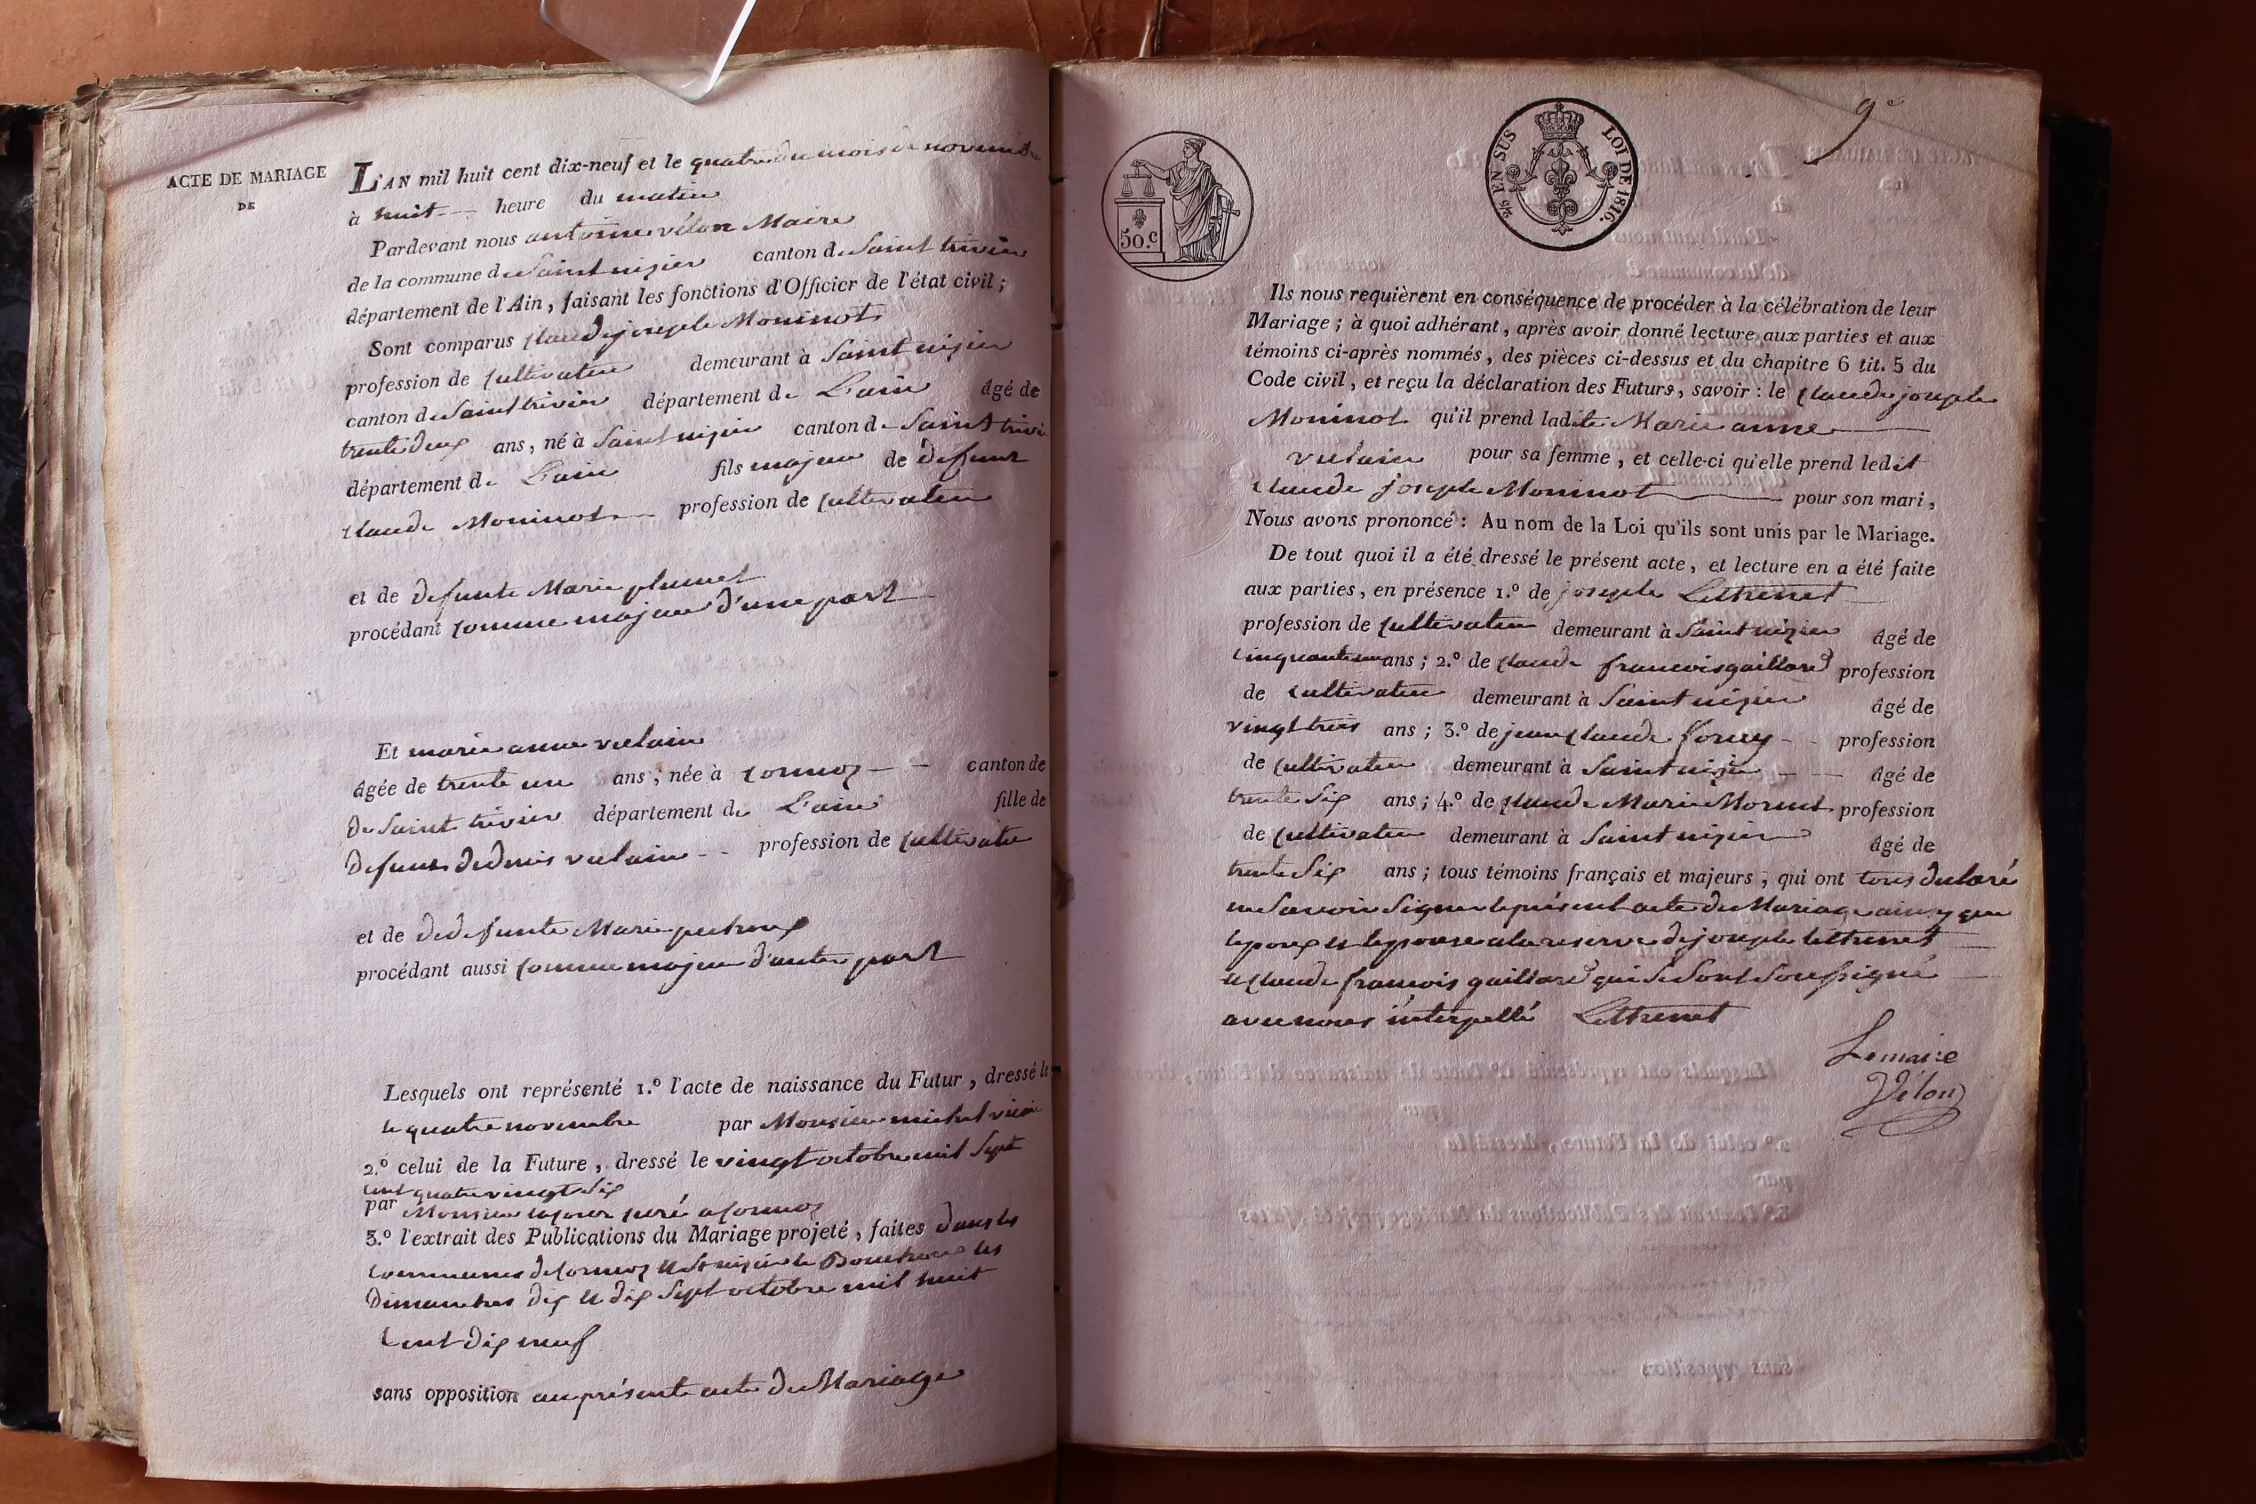 ACTE DE MARIAGE
DE
L'AN mil huit cent dix-neuf et le quatre du mois de novembre
à huit heure du matin
Pardevant nous antoine vélon Maire
de la commune de Saint nizier canton de Saint trivier
département de l'Ain, faisant les fonctions d'Officier de l'état civil;
Sont comparus Claude joseph Moninot
profession de Cultivateur demeurant à Saint nizier
canton de Saint trivier département de L'ain âgé de
trente deux ans, né à Saint nizier canton de Saint trivi
département de L'ain fils majeur de defunt
Claude Moninot profession de Cultivateur
et de defunte Marie plumet
procédant comme majeur d'une part
Et marie anne vulain
âgée de trente un ans, née à Cormoz canton de
de Saint trivier département de L'ain fille de
defunt de denis vulain profession de Cultivateur
et de de defunte Marie
procédant aussi comme majeur d'autre part
Lesquels ont représenté 1.º l'acte de naissance du Futur, dressé le
le quatre novembre par Monsieur michel
2.º celui de la Future, dressé le vingt octobre mil Sept
cent quatre vingt Six
par Monsieur curé a Cormoz
3.º l'extrait des Publications du Mariage projeté, faites dans les
communes de Cormoz et St nizier le Bouchoux les
dimanches dix et dix Sept octobre mil huit
Cent dix neuf
sans opposition au présente acte de Mariage
9e
50.c
EN SUS
LOI DE 1816.
Ils nous requièrent en conséquence de procéder à la célébration de leur
Mariage; à quoi adhérant, après avoir donné lecture aux parties et aux
témoins ci-après nommés, des pièces ci-dessus et du chapitre 6 tit. 5 du
Code civil, et reçu la déclaration des Futurs, savoir: le Claude joseph
Moninot qu'il prend ladite Marie anne
vulain pour sa femme, et celle-ci qu'elle prend ledit
Claude joseph Moninot pour son mari,
Nous avons prononcé: Au nom de la Loi qu'ils sont unis par le Mariage.
De tout quoi il a été dressé le présent acte, et lecture en a été faite
aux parties, en présence 1.º de joseph Lethenet
profession de Cultivateur demeurant à Saint nizier âgé de
ans; 2.º de Claude francois gaillard profession
de Cultivateur demeurant à Saint nizier âgé de
vingt trois ans; 3.º de jean Claude forey profession
de Cultivateur demeurant à Saint nizier âgé de
trente Six ans; 4.º de Claude Marie profession
de Cultivateur demeurant à Saint nizier âgé de
trente Six ans; tous témoins français et majeurs, qui ont tous declaré
ne Savoir Signer le présent acte de Mariage ainsy que
lepoux et lepouse a la reserve de joseph Lethenet
et Claude francois gaillard qui se Sont Soussigné
avec nous interpellé Lethenet
Lemaire
Vélon